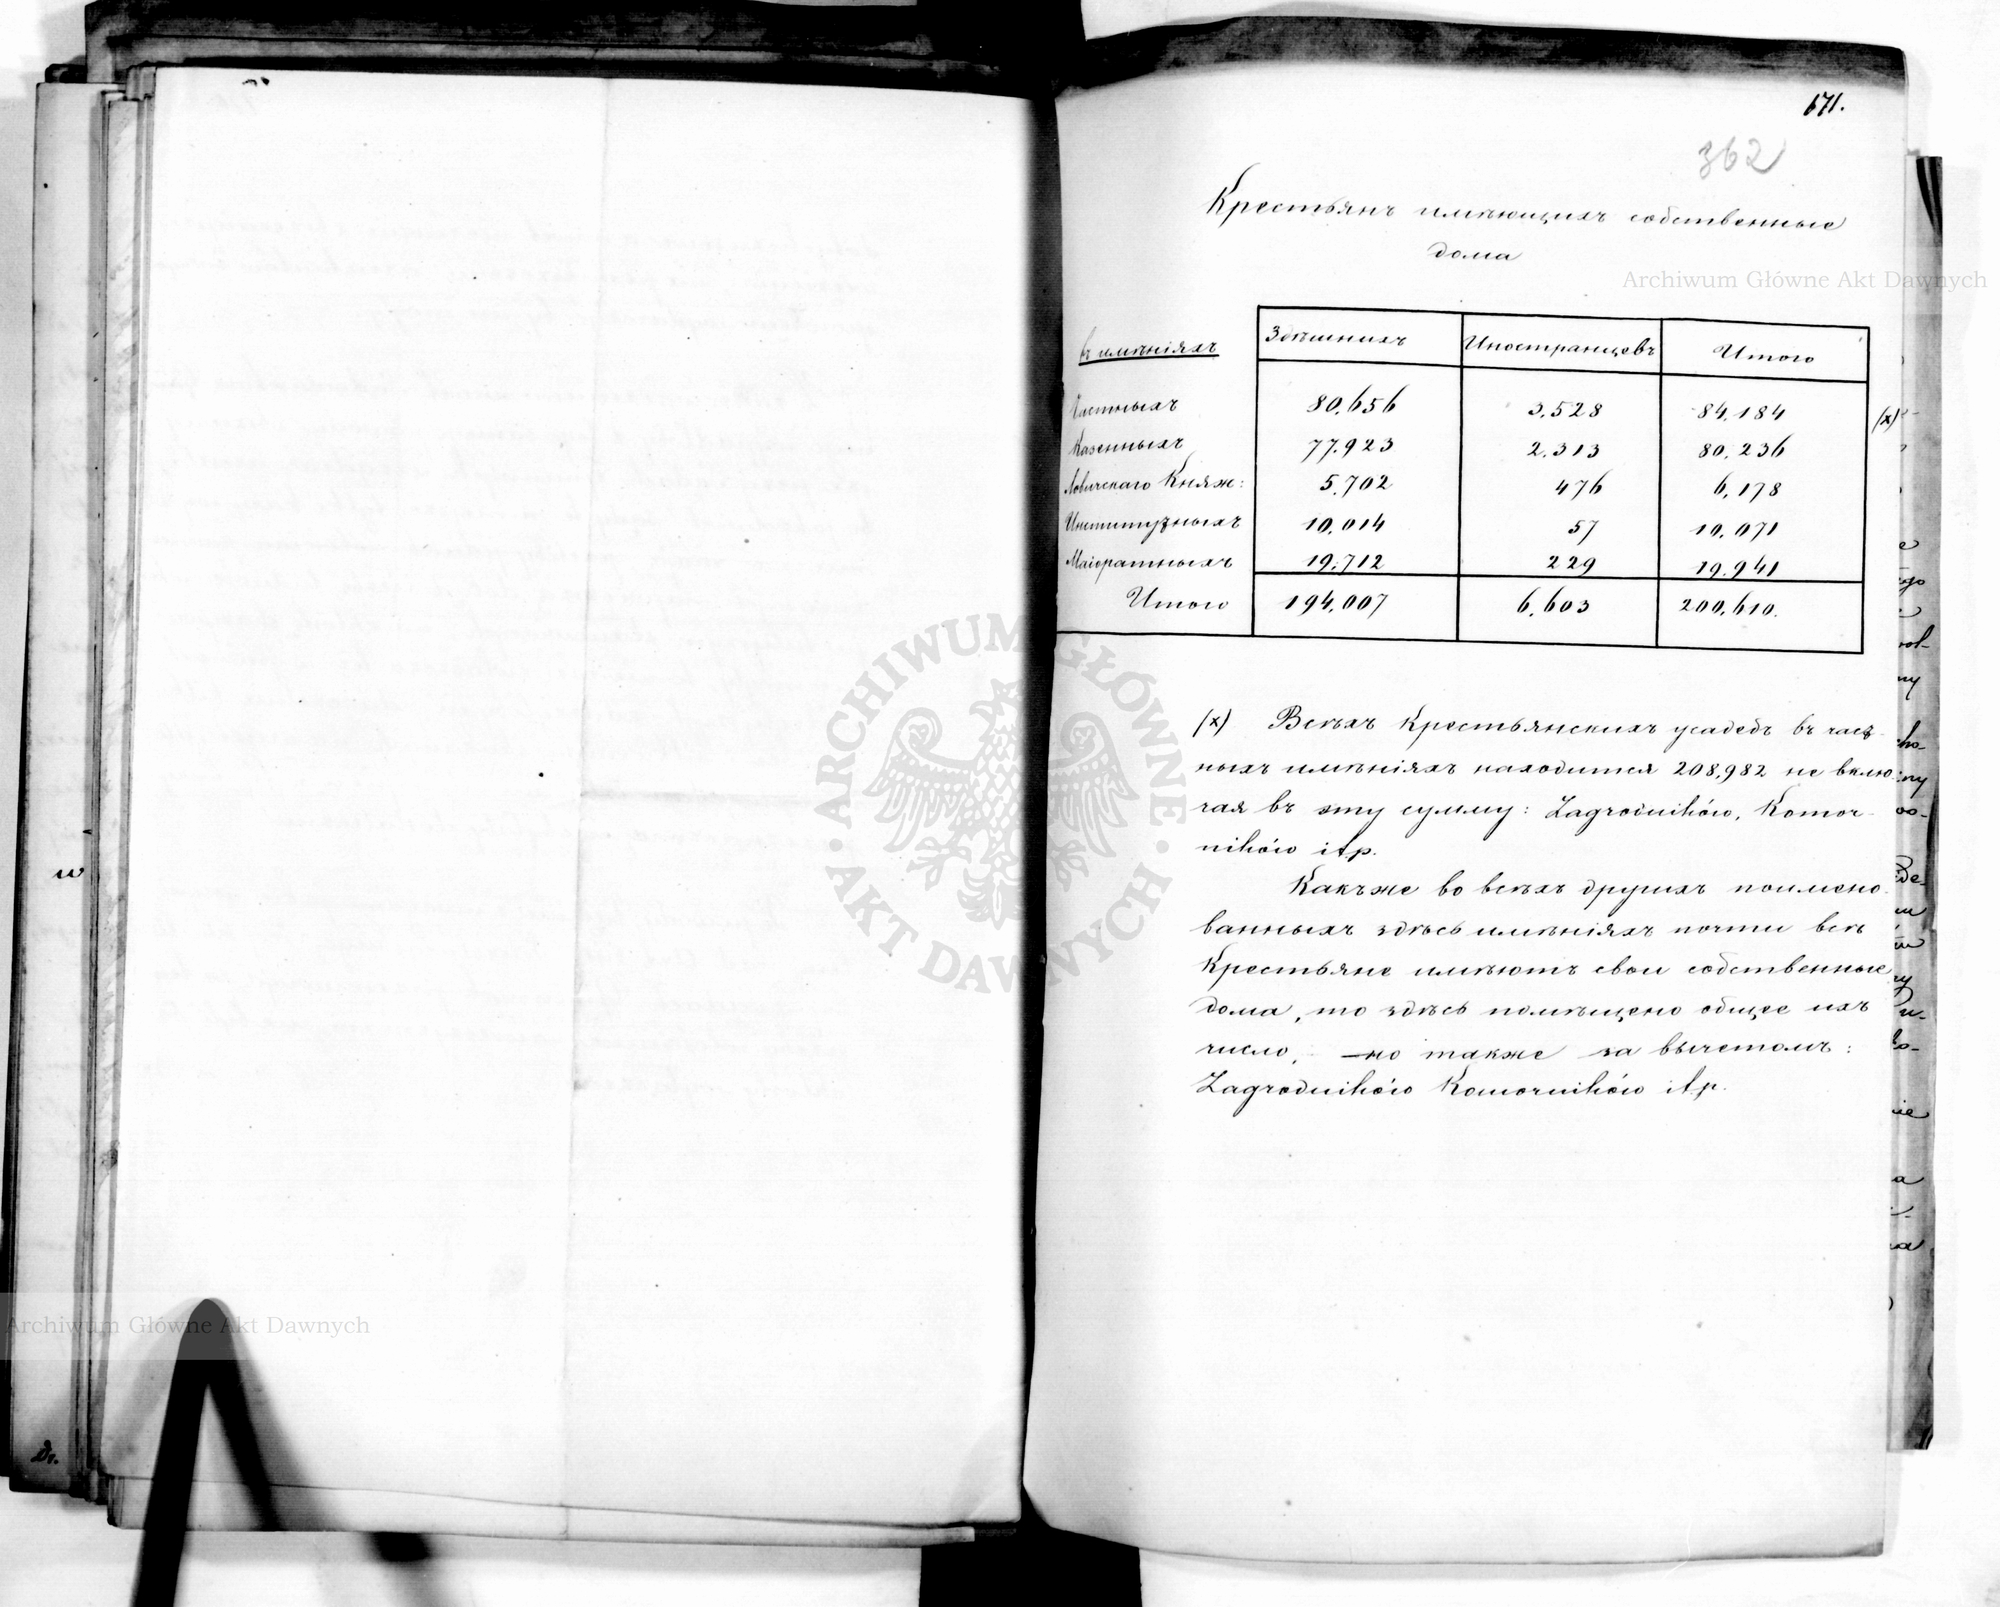 671.
362
Крестьянъ имѣющихъ собственные
дома
въ имѣніяхъ Здѣшнихъ Иностранцевъ Итого
Частныхъ 80,656 3,528 84,184 (x)
Казенныхъ 77,923 2,313 80,236
Ловичскаго Княж: 5,702 476 6,178
Институтныхъ 10,014 57 10,071
Маіоратныхъ 19,712 229 19,941
Итого 194,007 6,603 200,610.
(x) Всѣхъ Крестьянскихъ усадебъ въ част
ныхъ имѣніяхъ находится 208,982 не вклю
чая въ эту сумму: Zagrodników, Komor
ników itp.
Какъже во всѣхъ другихъ поимено
ванныхъ здѣсь имѣніяхъ почти всѣ
Крестьяне имѣютъ свои собственные
дома, то здѣсь помѣщено общее ихъ
число, но также за вычетомъ:
Zagrodników Komorników itp.
Archiwum Główne Akt Dawnych
ARCHIWUM GŁÓWNE AKT DAWNYCH
Archiwum Główne Akt Dawnych